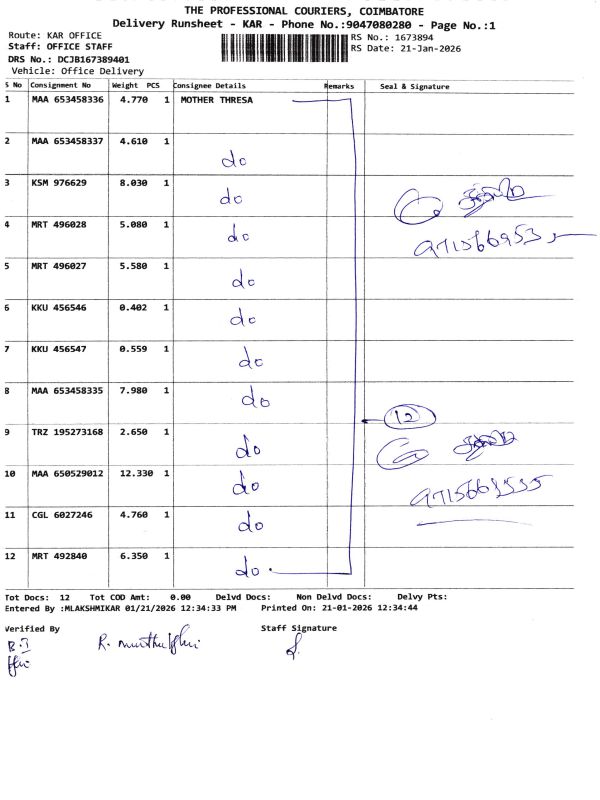 THE PROFESSIONAL COURIERS, COIMBATORE
Delivery Runsheet - KAR - Phone No.:9047080280 - Page No.:1
Route: KAR OFFICE
Staff: OFFICE STAFF
DRS No.: DCJB167389401
Vehicle: Office Delivery
RS No.: 1673894
RS Date: 21-Jan-2026
S No Consignment No Weight PCS Consignee Details Remarks Seal & Signature
1 MAA 653458336 4.770 1 MOTHER THRESA
2 MAA 653458337 4.610 1 do
3 KSM 976629 8.030 1 do
4 MRT 496028 5.080 1 do
5 MRT 496027 5.580 1 do
6 KKU 456546 0.402 1 do
7 KKU 456547 0.559 1 do
8 MAA 653458335 7.980 1 do
12
9 TRZ 195273168 2.650 1 do
10 MAA 650529012 12.330 1 do
11 CGL 6027246 4.760 1 do
12 MRT 492840 6.350 1 do
Tot Docs: 12 Tot COD Amt: 0.00 Delvd Docs: Non Delvd Docs: Delvy Pts:
Entered By :MLAKSHMIKAR 01/21/2026 12:34:33 PM Printed On: 21-01-2026 12:34:44
Verified By Staff Signature